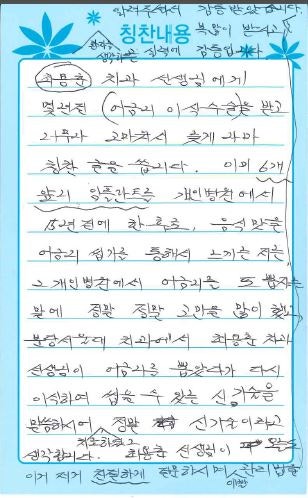 알려주셔서 감동 받았습니다
복많이 받으세요
칭찬내용
환자를 생각하는 실력에 감동입니다
최용훈 치과 선생님에게
몇년전 (어금니 이식수술)을 받고
너무나 고마워서 늦게 나마
칭찬 글을 씁니다. 이미 6개
앞니 임플란트를 개인병원에서
15년전에 한 후로, 음식맛을
어금니 씹기를 통해서 느끼는 저는
그 개인병원에서 어금니를 또 뽑자는
말에 정말 정말 고민을 많이 했고
분당서울대 치과에서 최용훈 치과
선생님이 어금니를 뽑았다가 다시
이식하여 씹을 수 있는 신기술을
말씀하시어 정말 신기술이라고
생각합니다. 최용훈 선생님이
이거 저거 친절하게 질문하시며 관리법을